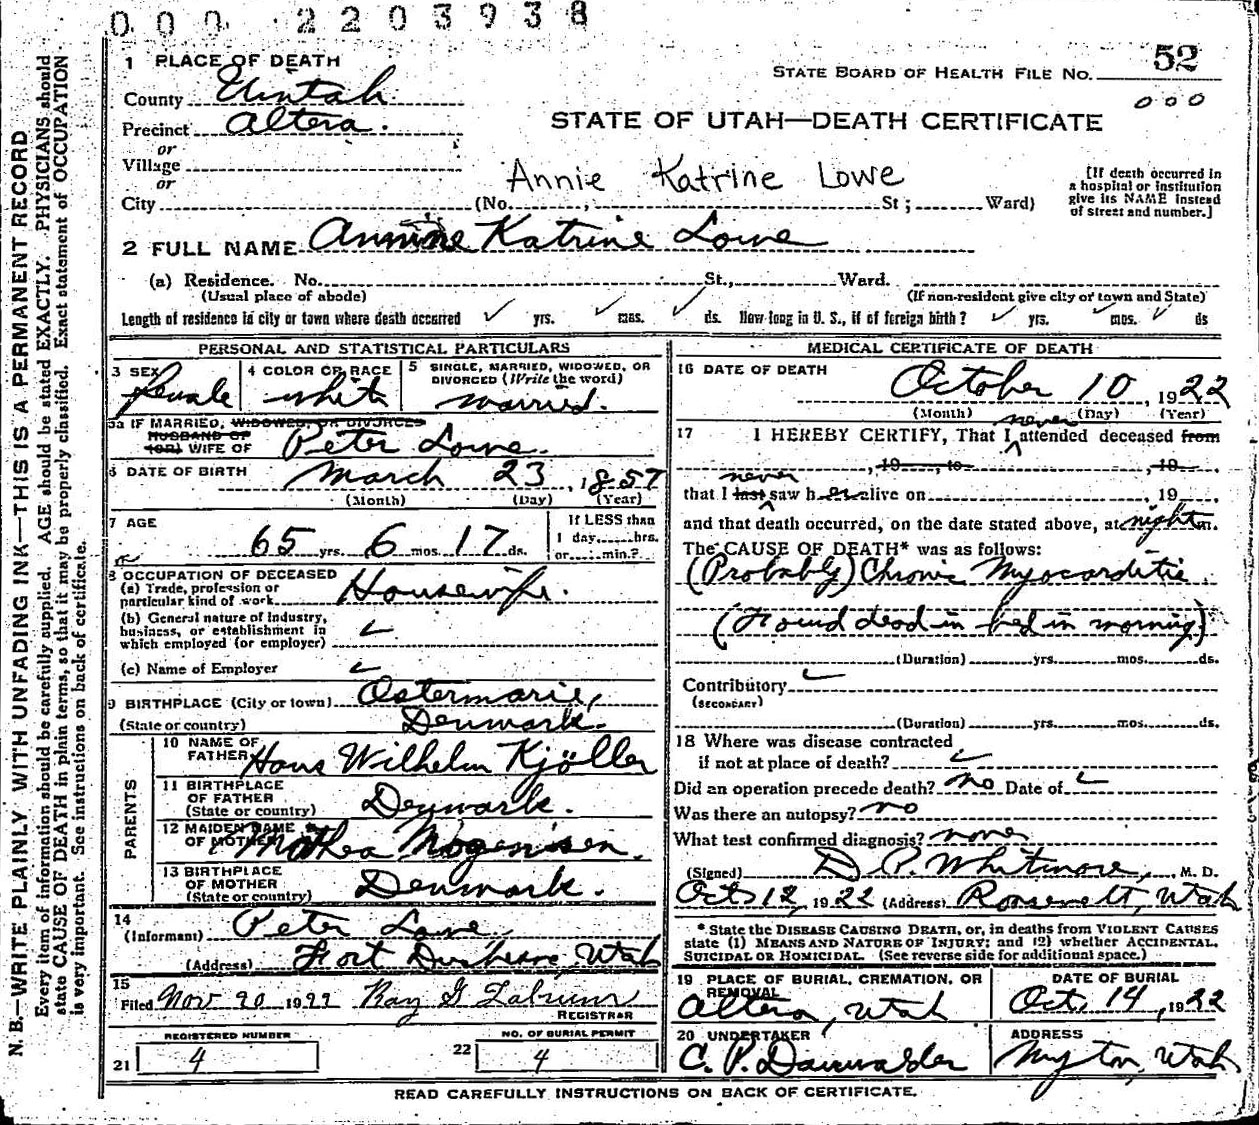 000 2203938
1 PLACE OF DEATH
County Uintah
Precinct Altera.
or
Village
or
City (No. , St ; Ward)
STATE BOARD OF HEALTH FILE NO. 52
000
STATE OF UTAH—DEATH CERTIFICATE
Annie Katrine Lowe
[If death occurred in
a hospital or institution
give its NAME instead
of street and number.]
2 FULL NAME Annine Katrine Lowe
(a) Residence. No. St., Ward.
(Usual place of abode) (If non-resident give city or town and State)
Length of residence in city or town where death occurred ✓ yrs. ✓ mos. ✓ ds. How long in U. S., if of foreign birth? ✓ yrs. ✓ mos. ✓ ds
PERSONAL AND STATISTICAL PARTICULARS
3 SEX female
4 COLOR OR RACE white
5 SINGLE, MARRIED, WIDOWED, OR
DIVORCED (Write the word)
married.
5a IF MARRIED, WIDOWED, OR DIVORCED
HUSBAND OF
(OR) WIFE OF Peter Lowe.
6 DATE OF BIRTH March 23, 1857
(Month) (Day) (Year)
7 AGE
65 yrs. 6 mos. 17 ds.
If LESS than
1 day, hrs.
or min.?
8 OCCUPATION OF DECEASED
(a) Trade, profession or
particular kind of work Housewife.
(b) General nature of industry,
business, or establishment in
which employed (or employer) ✓
(c) Name of Employer ✓
9 BIRTHPLACE (City or town) Ostermarie,
(State or country) Denmark.
PARENTS
10 NAME OF
FATHER Hans Wilhelm Kjöller
11 BIRTHPLACE
OF FATHER
(State or country) Denmark.
12 MAIDEN NAME
OF MOTHER Mathea Mogensen.
13 BIRTHPLACE
OF MOTHER
(State or country) Denmark.
14
(Informant) Peter Lowe,
(Address) Fort Duchesne, Utah
15
Filed Nov 20 1922 Ray G Labrum
REGISTRAR
REGISTERED NUMBER
21 4
NO. OF BURIAL PERMIT
22 4
MEDICAL CERTIFICATE OF DEATH
16 DATE OF DEATH
October 10, 1922
(Month) (Day) (Year)
never
17 I HEREBY CERTIFY, That I attended deceased from
, 19 , to , 19
never
that I last saw her alive on , 19
and that death occurred, on the date stated above, at night m.
The CAUSE OF DEATH* was as follows:
(Probably) Chronic Myocarditis
(Found dead in bed in morning)
(Duration) yrs. mos. ds.
Contributory ✓
(SECONDARY)
(Duration) yrs. mos. ds.
18 Where was disease contracted
if not at place of death? ✓
Did an operation precede death? no Date of ✓
Was there an autopsy? no
What test confirmed diagnosis? none
(Signed) D. P. Whitmore, M. D.
Oct 12, 1922 (Address) Roosevelt, Utah
* State the DISEASE CAUSING DEATH, or, in deaths from VIOLENT CAUSES
state (1) MEANS AND NATURE OF INJURY; and (2) whether ACCIDENTAL,
SUICIDAL OR HOMICIDAL. (See reverse side for additional space.)
19 PLACE OF BURIAL, CREMATION, OR
REMOVAL
Altera, Utah
DATE OF BURIAL
Oct. 14, 1922
20 UNDERTAKER
C. P.
ADDRESS
Myton, Utah
READ CAREFULLY INSTRUCTIONS ON BACK OF CERTIFICATE.
N. B.—WRITE PLAINLY WITH UNFADING INK—THIS IS A PERMANENT RECORD
Every item of information should be carefully supplied. AGE should be stated EXACTLY. PHYSICIANS should
state CAUSE OF DEATH in plain terms, so that it may be properly classified. Exact statement of OCCUPATION
is very important. See instructions on back of certificate.